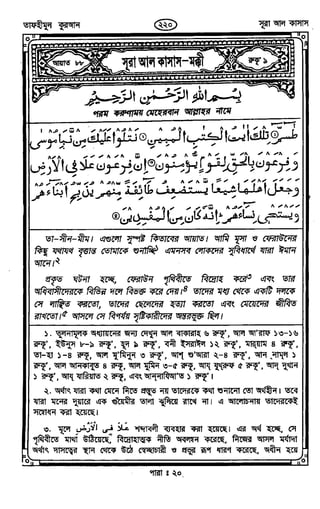 তাফহীমুল কুরআন ২২০ সূরা আল কাসাস
আয়াত ৮৮ সূরা আল কাসাস-মক্কী রুকূ' ৯
بِسْمِ اللّٰهِ الرَّحْمٰنِ الرَّحِيْمِ
পরম করুণাময় মেহেরবান আল্লাহর নামে
طٰسٓمّٓ ① تِلْكَ اٰيٰتُ الْكِتٰبِ الْمُبِيْنِ ② نَتْلُوْا عَلَيْكَ مِنْ نَّبَاِ مُوْسٰى
وَفِرْعَوْنَ بِالْحَقِّ لِقَوْمٍ يُّؤْمِنُوْنَ ③ اِنَّ فِرْعَوْنَ عَلَا فِى الْاَرْضِ
وَجَعَلَ اَهْلَهَا شِيَعًا يَّسْتَضْعِفُ طَآئِفَةً مِّنْهُمْ يُذَبِّحُ اَبْنَآءَهُمْ
وَيَسْتَحْىٖ نِسَآءَهُمْ ؕ اِنَّهٗ كَانَ مِنَ الْمُفْسِدِيْنَ ④
তা-সীন-মীম। এগুলো সুস্পষ্ট কিতাবের আয়াত। আমি মূসা ও ফেরাউনের
কিছু যথাযথ বৃত্তান্ত তোমাকে শুনাচ্ছি এমনসব লোকদের সুবিধার্থে যারা ঈমান
আনে।২
প্রকৃত ঘটনা হচ্ছে, ফেরাউন পৃথিবীতে বিদ্রোহ করে৩ এবং তার
অধিবাসীদেরকে বিভিন্ন দলে বিভক্ত করে দেয়।৪ তাদের মধ্য থেকে একটি দলকে
সে লাঞ্ছিত করতো, তাদের ছেলেদের হত্যা করতো এবং মেয়েদের জীবিত
রাখতো।৫ আসলে সে বিপর্যয় সৃষ্টিকারীদের অন্তরভুক্ত ছিল।
১. তুলনামূলক অধ্যয়নের জন্য দেখুন আল বাকারাহ ৬ রুকূ', আল আ'রাফ ১৩-১৬
রুকূ', ইউনুস ৮-৯ রুকূ', হূদ ৯ রুকূ', বনী ইসরাঈল ১২ রুকূ', মারয়াম ৪ রুকূ',
তা-হা ১-৪ রুকূ', আল মু'মিনূন ৩ রুকূ', আশ শু'আরা ২-৪ রুকূ', আন নামল ১
রুকূ', আল আনকাবূত ৪ রুকূ', আল মু'মিন ৩-৫ রুকূ', আয যুখরুফ ৫ রুকূ', আদ দুখান
১ রুকূ', আয যারিয়াত ২ রুকূ', এবং আন নাযি'আত ১ রুকূ'।
২. অর্থাৎ যারা কথা মেনে নিতে প্রস্তুত নয় তাদেরকে কথা শুনানো তো অর্থহীন। তবে
যারা মনের দুয়ারে এক গুঁয়েমীর তালা ঝুলিয়ে রাখে না। এ আলোচনায় তাদেরকেই
সম্বোধন করা হয়েছে।
৩. মূলে عَلَا فِى الْاَرْضِ শব্দাবলী ব্যবহার করা হয়েছে। এর অর্থ হচ্ছে, সে
পৃথিবীতে মাথা উঠিয়েছে, বিদ্রোহাত্মক নীতি অবলম্বন করেছে, নিজের আসল মর্যাদা
অর্থাৎ দাসত্বের স্থান থেকে উঠে স্বেচ্ছাচারী ও প্রভুর রূপ ধারণ করেছে, অধীন হয়ে
পারা : ২০